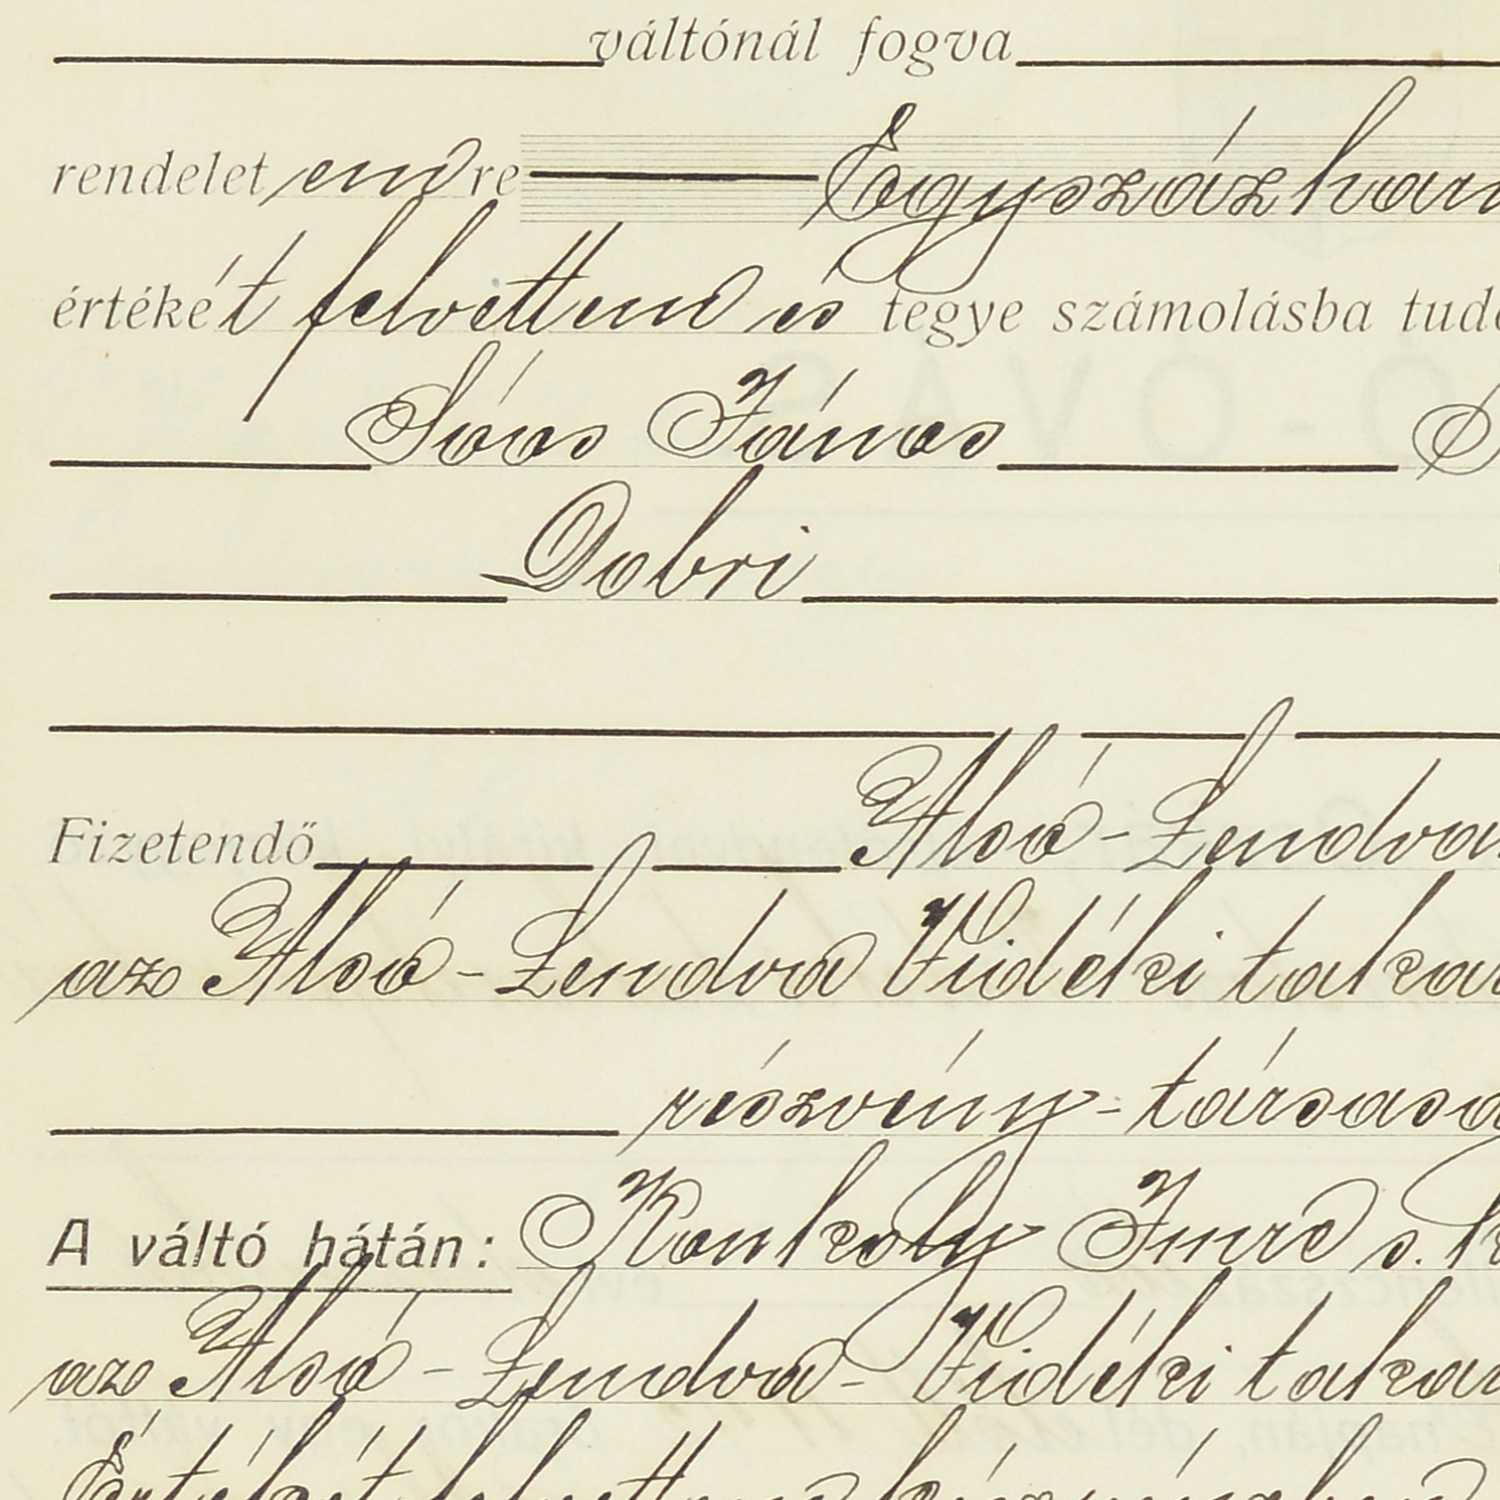 váltónál fogva
rendelet em re Egyszáz har
értékét felvettem és tegye számolásba tudó
Sóos János
Dobri
Fizetendő Alsó-Lendva
az Alsó-Lendva Vidéki takar
részvény-társasá
A váltó hátán: Konkoly Imre s. k
az Alsó-Lendva-Vidéki takar
Értékét felvettem készpénzben